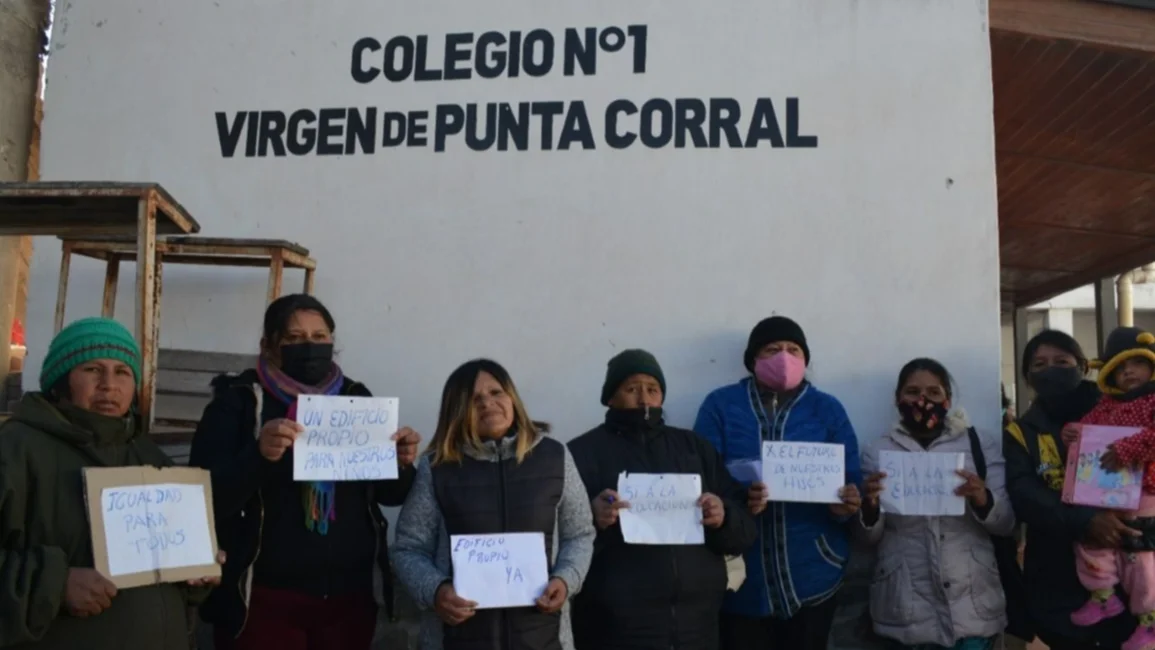 COLEGIO Nº1
VIRGEN DE PUNTA CORRAL
IGUALDAD
PARA
TODOS
UN EDIFICIO
PROPIO
PARA NUESTROS
NIÑOS
EDIFICIO
PROPIO
YA
SI A LA
EDUCACION
X EL FUTURO
DE NUESTROS
HIJOS
SI A LA